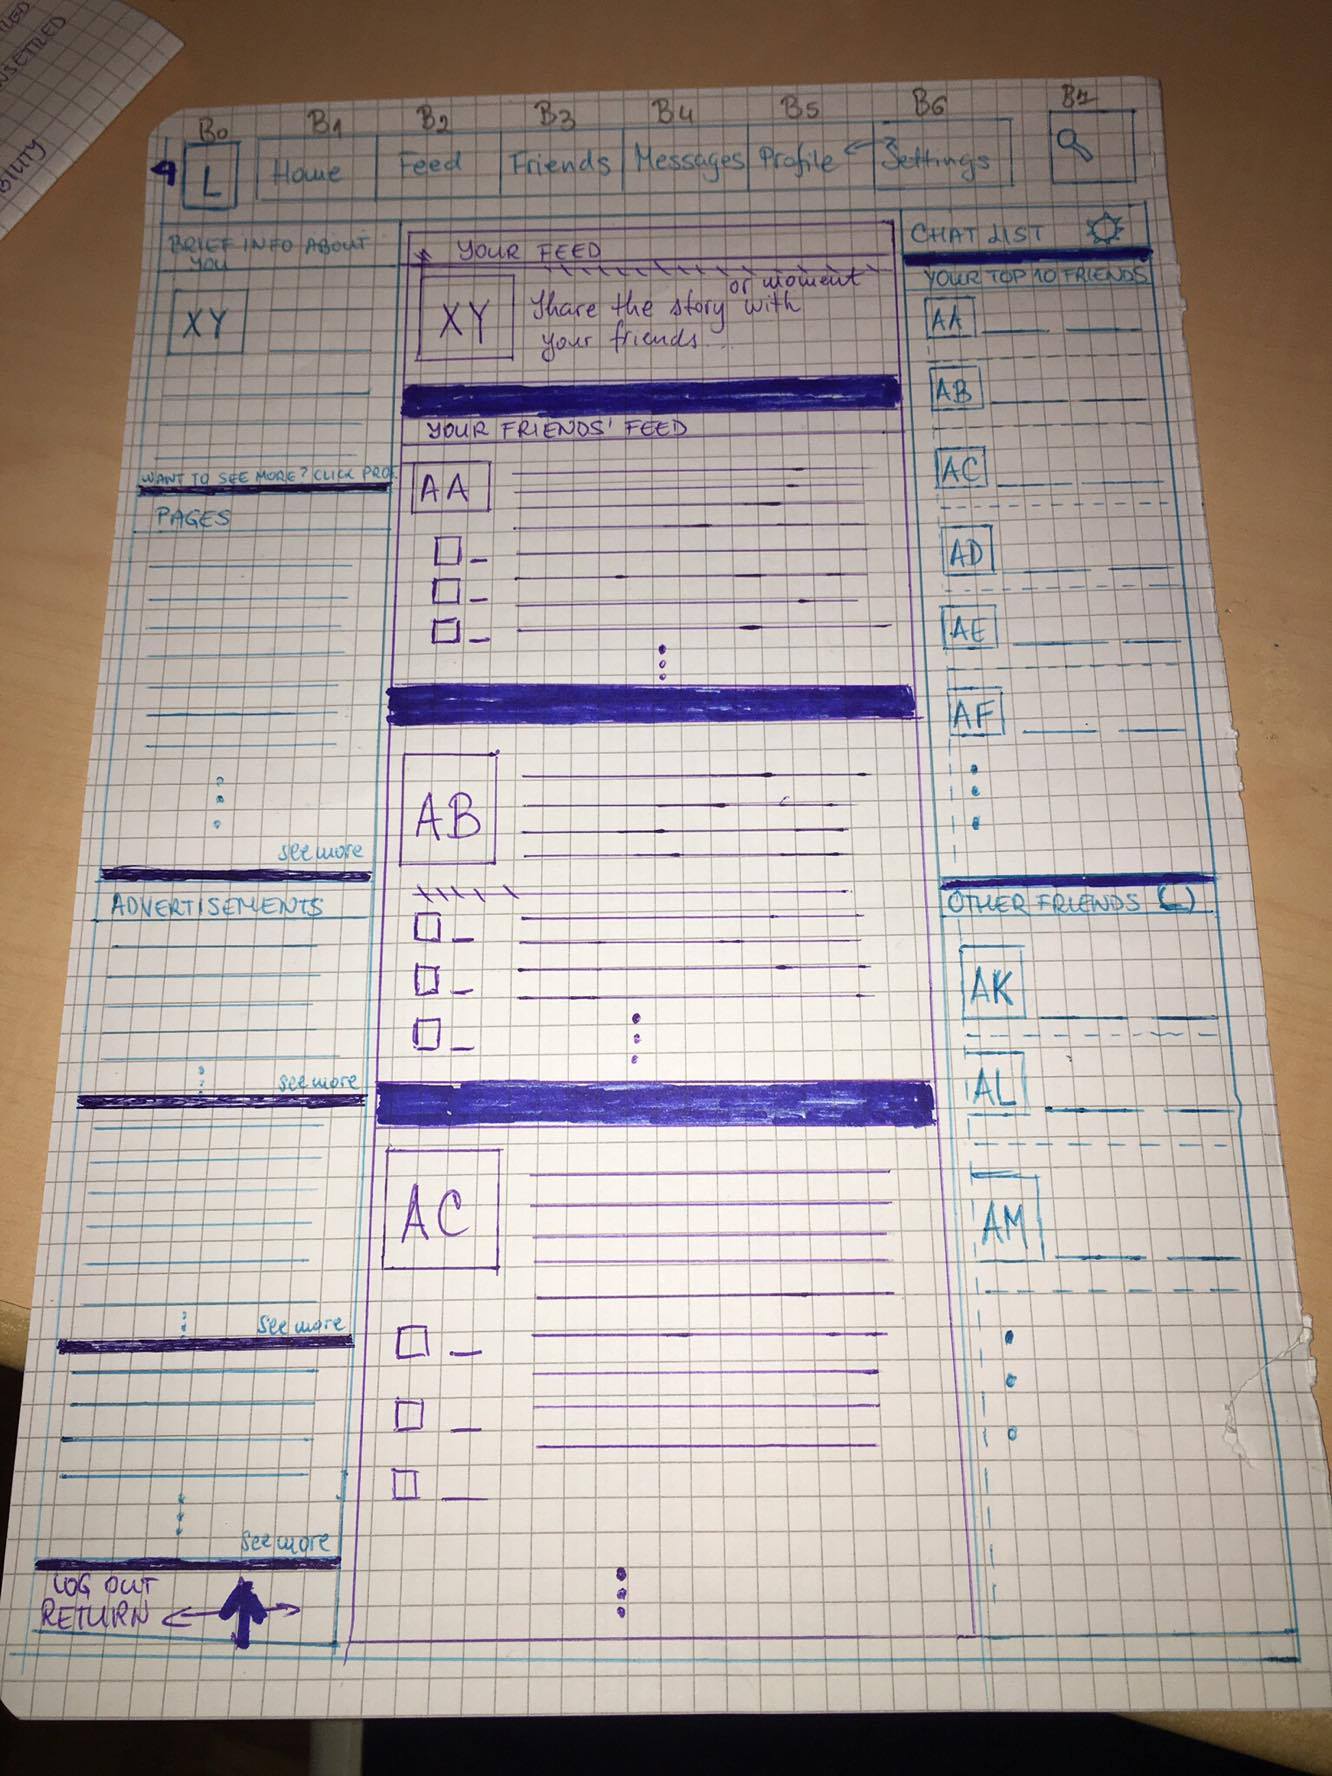 BILITY
B0 B1 B2 B3 B4 B5 B6 B7
L Home Feed Friends Messages Profile Settings
BRIEF INFO ABOUT
YOU
XY
WANT TO SEE MORE? CLICK PROF.
PAGES
see more
ADVERTISEMENTS
see more
see more
see more
LOG OUT
RETURN
YOUR FEED
XY
or moment
Share the story with
your friends...
YOUR FRIENDS' FEED
AA
AB
AC
CHAT LIST
YOUR TOP 10 FRIENDS
AA
AB
AC
AD
AE
AF
OTHER FRIENDS (_)
AK
AL
AM